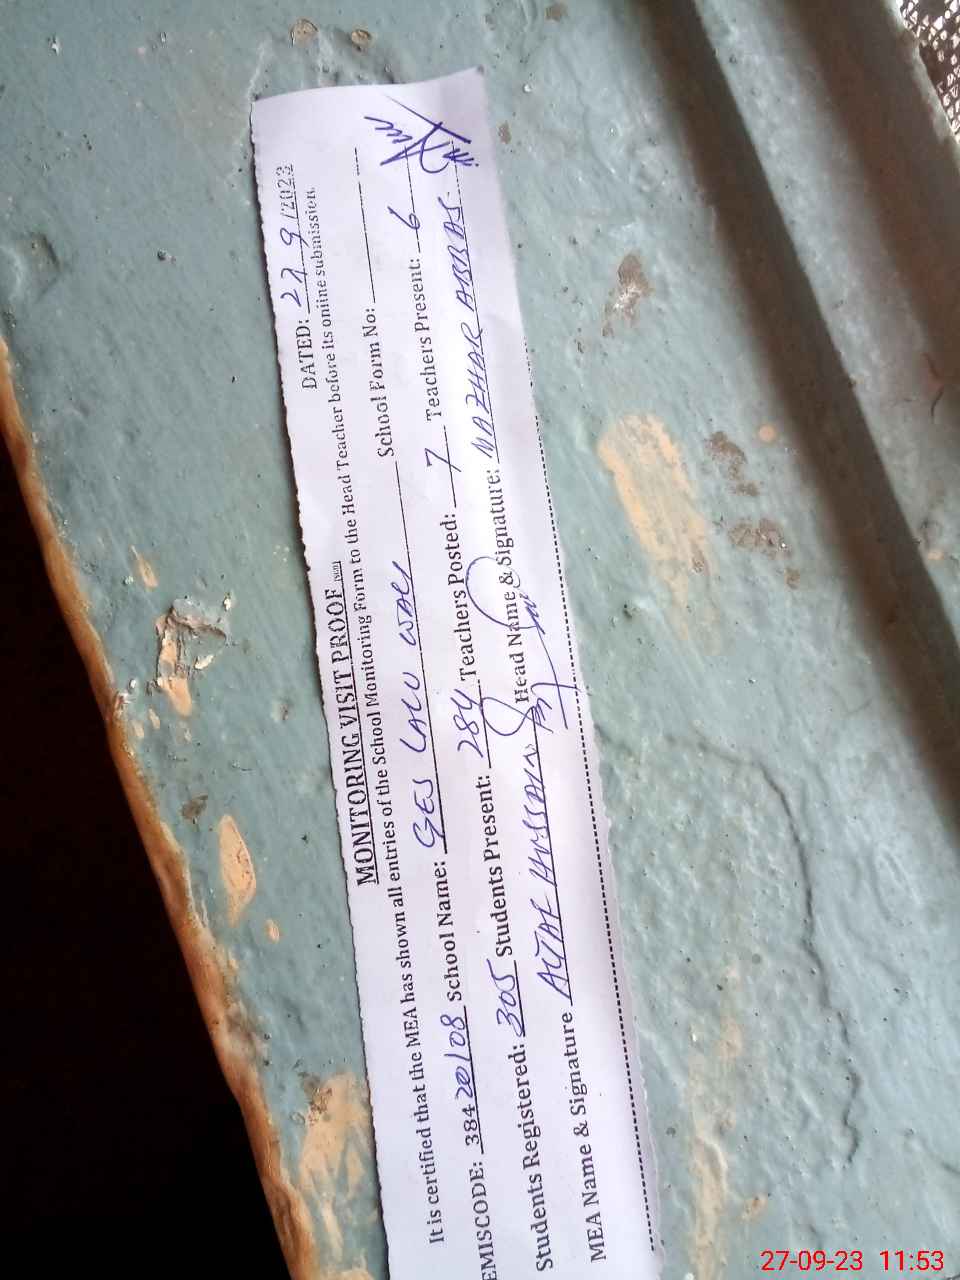 DATED: 27/9/2023
MONITORING VISIT PROOF
It is certified that the MEA has shown all entries of the School Monitoring Form to the Head Teacher before its online submission.
EMISCODE: 38420108 School Name: GES LALU WALI School Form No:
Students Registered: 305 Students Present: 284 Teachers Posted: 7 Teachers Present: 6
MEA Name & Signature ALTAF HUSSAIN Head Name & Signature: MAZHAR ABBAS
27-09-23 11:53